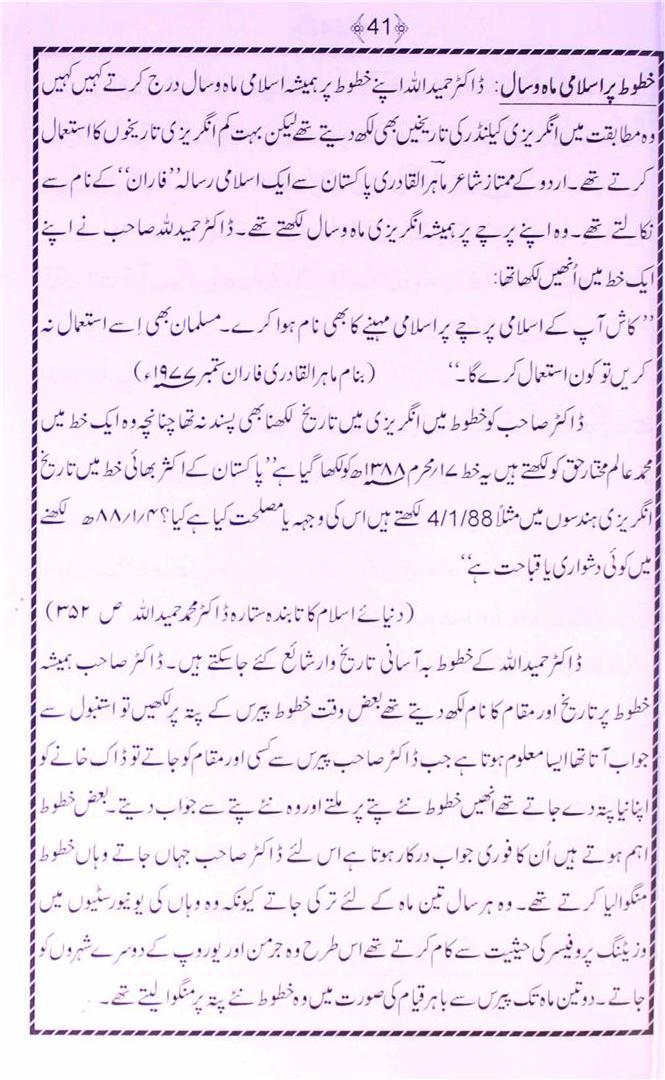 ﴿41﴾
خطوط پر اسلامی ماہ وسال: ڈاکٹر حمید اللہ اپنے خطوط پر ہمیشہ اسلامی ماہ وسال درج کرتے کہیں کہیں
وہ مطابقت میں انگریزی کیلنڈر کی تاریخیں بھی لکھ دیتے تھے لیکن بہت کم انگریزی تاریخوں کا استعمال
کرتے تھے۔ اردو کے ممتاز شاعر ماہر القادری پاکستان سے ایک اسلامی رسالہ ’’فاران‘‘ کے نام سے
نکالتے تھے۔ وہ اپنے پرچے پر ہمیشہ انگریزی ماہ وسال لکھتے تھے۔ ڈاکٹر حمید اللہ صاحب نے اپنے
ایک خط میں اُنھیں لکھا تھا:
’’کاش آپ کے اسلامی پرچے پر اسلامی مہینے کا بھی نام ہوا کرے۔ مسلمان بھی اِسے استعمال نہ
کریں تو کون استعمال کرے گا۔‘‘ (بنام ماہر القادری فاران ستمبر ۱۹۷۷ء)
ڈاکٹر صاحب کو خطوط میں انگریزی میں تاریخ لکھنا بھی پسند نہ تھا چنانچہ وہ ایک خط میں
محمد عالم مختار حق کو لکھتے ہیں یہ خط ۱۷/محرم ۱۳۸۸ھ کو لکھا گیا ہے ’’پاکستان کے اکثر بھائی خط میں تاریخ
انگریزی ہندسوں میں مثلاً 4/1/88 لکھتے ہیں اس کی وجہ یا مصلحت کیا ہے کیا؟ ۸۸/۱/۴ھ لکھنے
میں کوئی دشواری یا قباحت ہے‘‘
(دنیائے اسلام کا تابندہ ستارہ ڈاکٹر محمد حمید اللہ ص ۳۵۲)
ڈاکٹر حمید اللہ کے خطوط بہ آسانی تاریخ وار شائع کئے جا سکتے ہیں۔ ڈاکٹر صاحب ہمیشہ
خطوط پر تاریخ اور مقام کا نام لکھ دیتے تھے بعض وقت خطوط پیرس کے پتہ پر لکھیں تو استنبول سے
جواب آتا تھا ایسا معلوم ہوتا ہے جب ڈاکٹر صاحب پیرس سے کسی اور مقام کو جاتے تو ڈاک خانے کو
اپنا نیا پتہ دے جاتے تھے انھیں خطوط نئے پتے پر ملتے اور وہ نئے پتے سے جواب دیتے۔ بعض خطوط
اہم ہوتے ہیں اُن کا فوری جواب درکار ہوتا ہے اس لئے ڈاکٹر صاحب جہاں جاتے وہاں خطوط
منگوالیا کرتے تھے۔ وہ ہر سال تین ماہ کے لئے ترکی جاتے کیونکہ وہ وہاں کی یونیورسٹیوں میں
وزیٹنگ پروفیسر کی حیثیت سے کام کرتے تھے اس طرح وہ جرمن اور یوروپ کے دوسرے شہروں کو
جاتے۔ دو تین ماہ تک پیرس سے باہر قیام کی صورت میں وہ خطوط نئے پتہ پر منگوا لیتے تھے۔